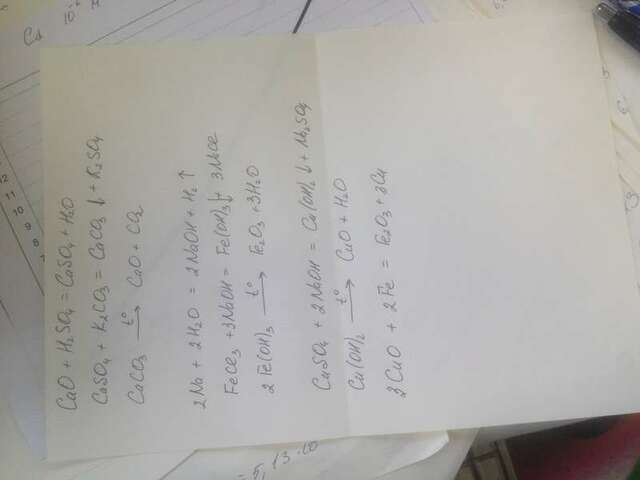 CaO + H₂SO₄ = CaSO₄ + H₂O
CaSO₄ + K₂CO₃ = CaCO₃ ↓ + K₂SO₄
CaCO₃ →(t°) CaO + CO₂
2Na + 2H₂O = 2NaOH + H₂ ↑
FeCl₃ + 3NaOH = Fe(OH)₃ ↓ + 3NaCl
2Fe(OH)₃ →(t°) Fe₂O₃ + 3H₂O
CuSO₄ + 2NaOH = Cu(OH)₂ ↓ + Na₂SO₄
Cu(OH)₂ →(t°) CuO + H₂O
3CuO + 2Fe = Fe₂O₃ + 3Cu
12
11
10
9
8
7